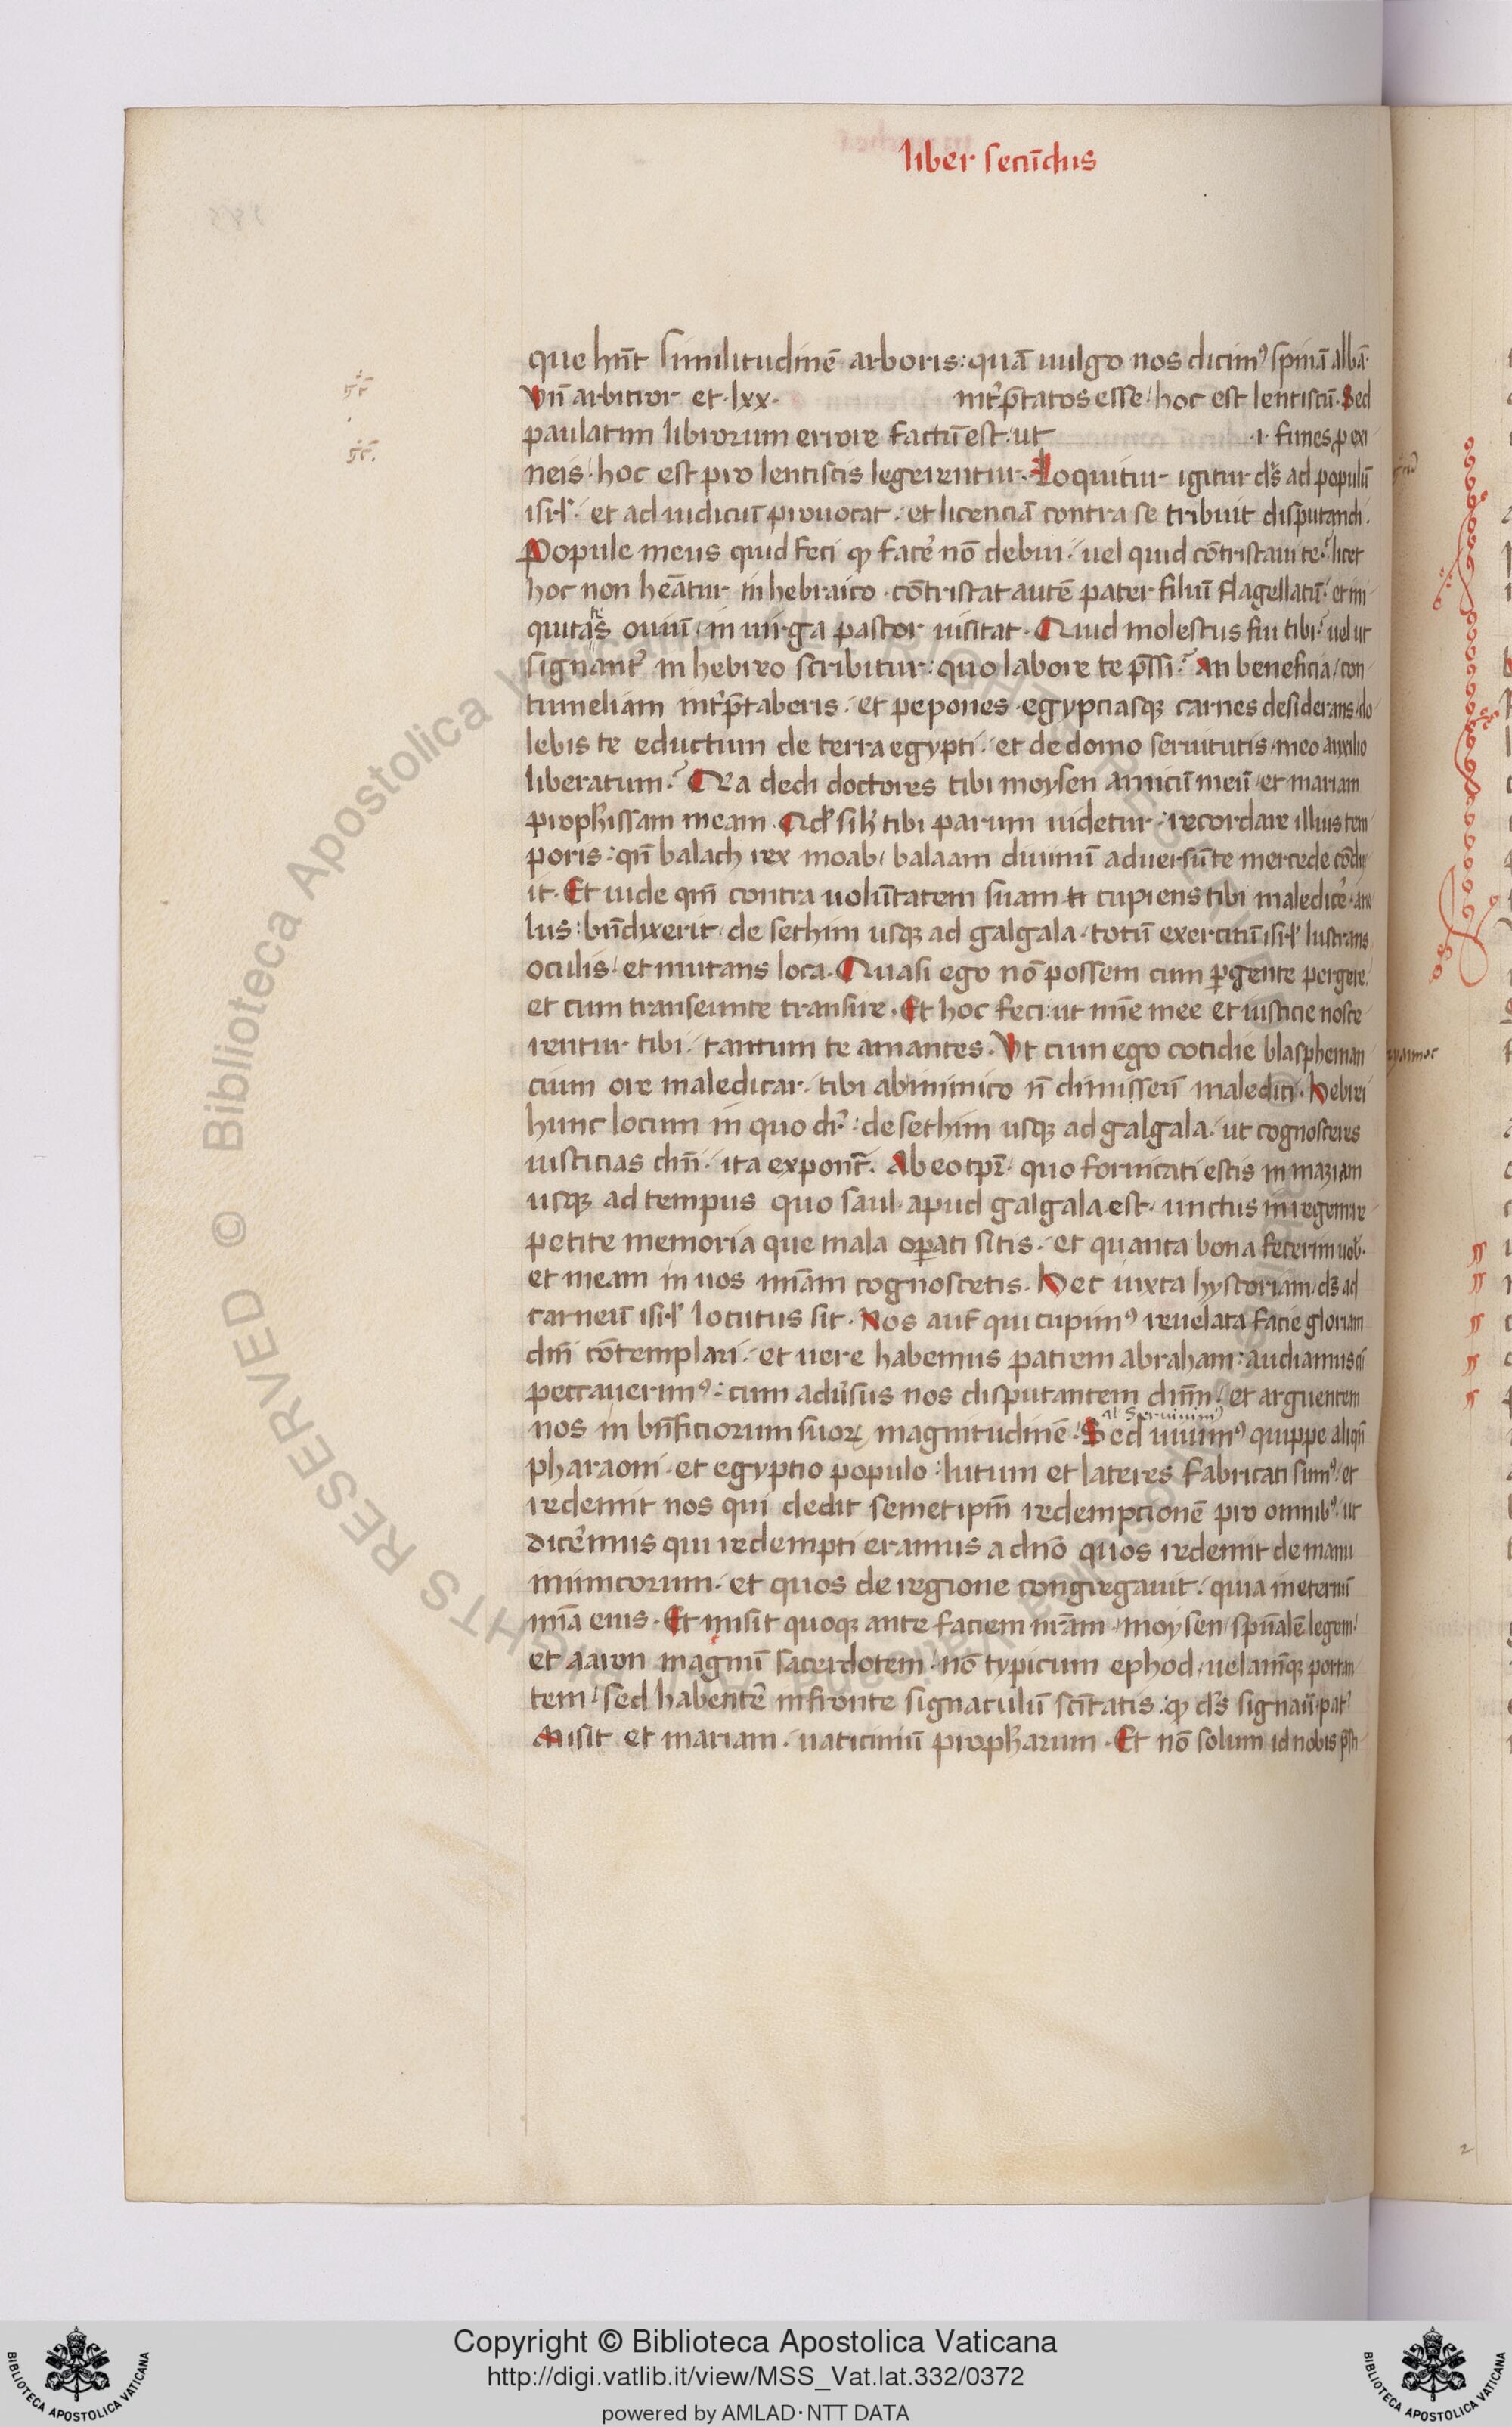 liber secūdus
que hn̄t similitudinē arboris: quā uulgo nos dicimꝰ spinā albā.
Vn̄ arbitror et .lxx. int̉p̄tatos esse: hoc est lentiscū. Sed
paulatim librorum errore factū est: ut .i. funes ꝓ exi
neis: hoc est pro lentiscis legerentur. Loquitur igitur dꝰs ad populū
isrł: et ad iudiciū prouocat: et licenciā contra se tribuit disputandi.
Popule meus quid feci ꝙ face̓ nō debui: uel quid cōtristaui te? licet
hoc non heātur in hebraico. cōtristat autē pater filiū flagellatū: et ini
quitates ouiū in uirga pastor uisitat. Quid molestus fui tibi? uel ut
signant̉ in hebreo scribitur: quo labore te p̄ssi? An beneficia con
tumeliam int̉p̄taberis: et pepones egypciasqꝫ carnes desiderans do
lebis te eductum de terra egypti: et de domo seruitutis meo auxilio
liberatum? Na dedi doctores tibi moysen amicū meū et mariam
proph̄issam meam. Qd̓ si h̓ tibi parum uidetur: recordare illius tem
poris: qn̄ balach rex moab balaam diuinū aduersū te mercede cōdu
it. Et uide qm̄ contra uolūtatem suam ti cupiens tibi maledice̓
lus: bn̄dixerit de sethim usqꝫ ad galgala totū exercitū isrł lustrans
oculis et mutans loca. Quasi ego nō possem cum ꝑgente pergere.
et cum transeunte transire. Et hoc feci: ut mīe mee et iusticie nosce
rentur tibi: tantum te amantes. Vt cum ego cotidie blaspheman
cium ore maledicar: tibi ab inimico n̄ dimisserī maledici. Hebrei
hunc locum in quo dr̄: de sethim usqꝫ ad galgala: ut cognosceres
iusticias dn̄i: ita exponūt. Ab eo tpr̄e quo fornicati estis in maziam
usqꝫ ad tempus quo saul apud galgala est unctus in regem re
petite memoria que mala oꝑati sitis: et quanta bona fecerim uob.
et meam in uos miām cognoscetis. Hec iuxta hystoriam: dꝰs ad
carneū isrł locutus sit. Nos aut̄ qui cupimꝰ reuelata facie gloriam
dn̄i cōtemplari: et uere habemus patrem abraham: audiamus cū
peccauerimꝰ: cum adu̓sus nos disputantem dn̄m: et arguentem
al seruiuimꝰ
nos in bn̄ficiorum suoꝝ magnitudinē. Sed uiuimꝰ quippe aliqn̄
pharaoni et egyptio populo: lutum et lateres fabricati sumꝰ: et
redemit nos qui dedit semetipm̄ redempcionē pro omnibꝰ: ut
dice̓mus qui redempti eramus a dno̅ quos redemit de manu
inimicorum: et quos de regione congregauit: quia in eternū
miā eius. Et misit quoqꝫ ante faciem nr̄am moysen spūalē legem:
et aaron magnū sacerdotem: nō typicum ephod uelamqꝫ portan
tem: sed habentē in fronte signaculū scītatis: ꝙ dꝰs signauit pat̓
Misit et mariam: uaticiniū proph̄arum. Et nō solum id nobis